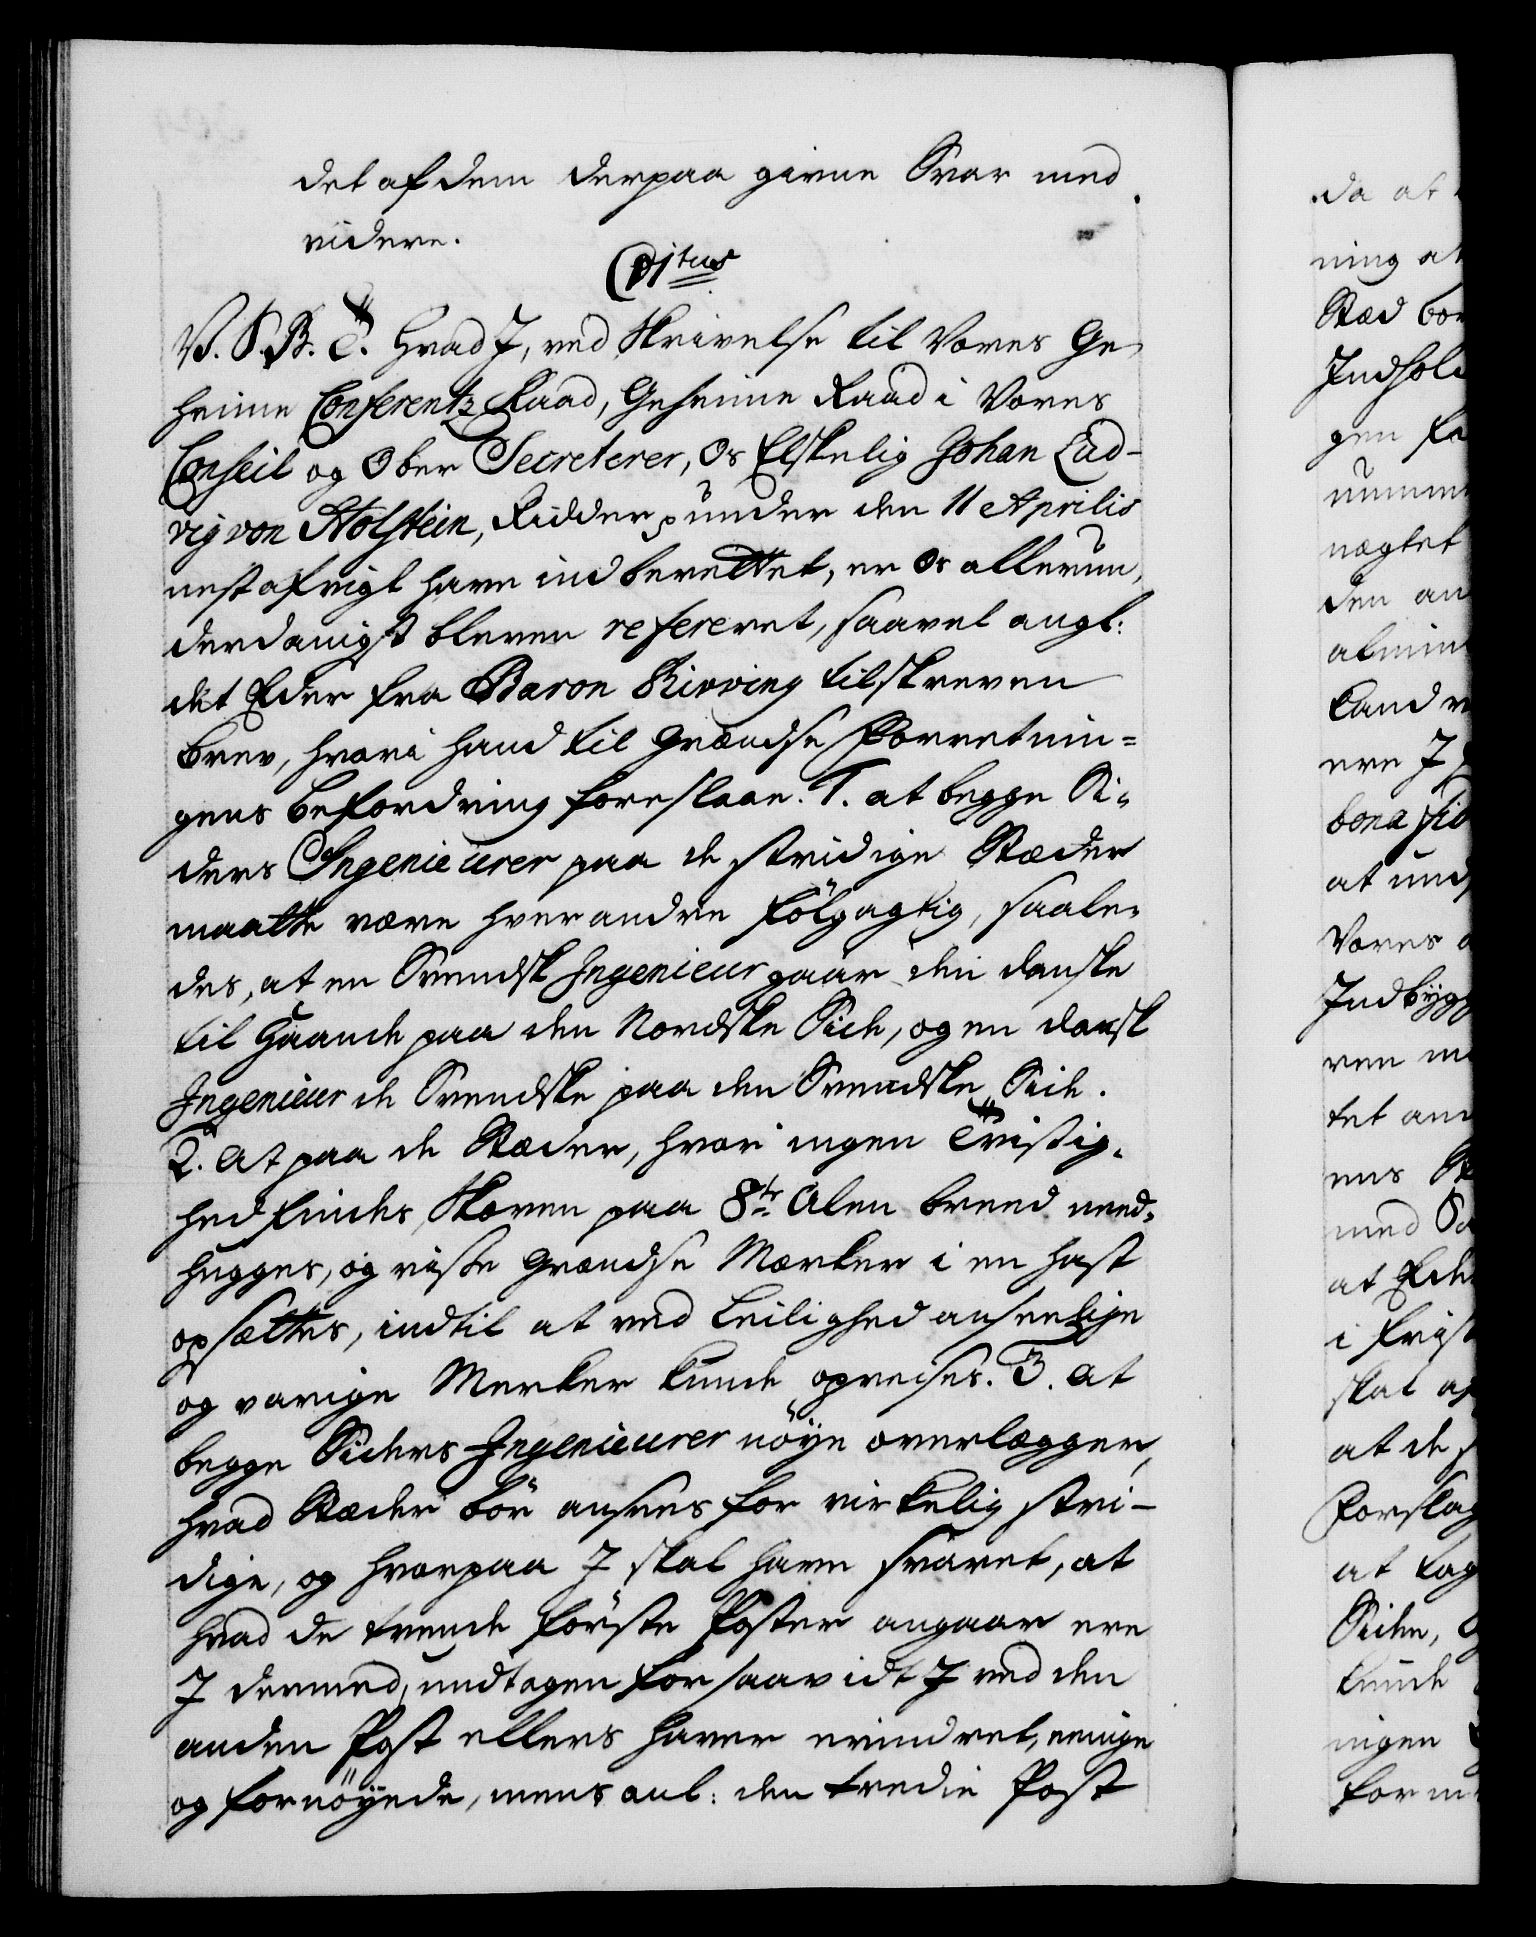 det af dem derpaa givne Svar med
videre.
Titus
V. S. B. T. Hvad I, ved Skrivelse til Vores Ge-
heime Conferentz Raad, Geheime Raad i Vores
Conseil og Ober Secreterer, Os Elskelig Johan Lud-
vig von Holstein, Ridder, under den 11 Aprilis
nest afvigt have indberettet, er Os allerun-
derdanigst bleven refereret, saavel angl:
det Eder fra Baron Rivving tilskreven
brev, hvori hand til Grændse Forretnin-
gens befordring foreslaar. 1. at begge Si-
ders Ingenieurer paa de stridige Stæder
maatte være hverandre følgagtig, saale-
des, at en Svendsk Ingenieur gaar den danske
til Haande paa den Nordske Side, og en dansk
Ingenieur de Svendske paa den Svendske Side.
2. At paa de Stæder, hvor ingen Tvistig-
hed findes, Skoven paa 8te Alen breed need-
hugges, og visse Grændse Mærker i en hast
opsættes, indtil at ved Leilighed anseelige
og varige Merker kunde opreises. 3. At
begge Siders Ingenieurer nöye overlægger,
hvad Stæder bör ansees for virkelig stri-
dige, og hvorpaa I skal have svaret, at
hvad de tvende förste Poster angaar ere
I dermed, undtagen for saavidt I ved den
anden Post ellers haver erindret, eenige
og fornöyede, mens anl: den tredie Post
da at
ning at
Stæd bor
Indhold
gen fo
numme
nægtet
den an
almin
Land
ere I
bona fid
at und
Vores
Indbygg
ven
tet an
ens
med
at Ede
i frist
skal af
at de
Forslag
at tag
Siden,
kunde
ingen
for